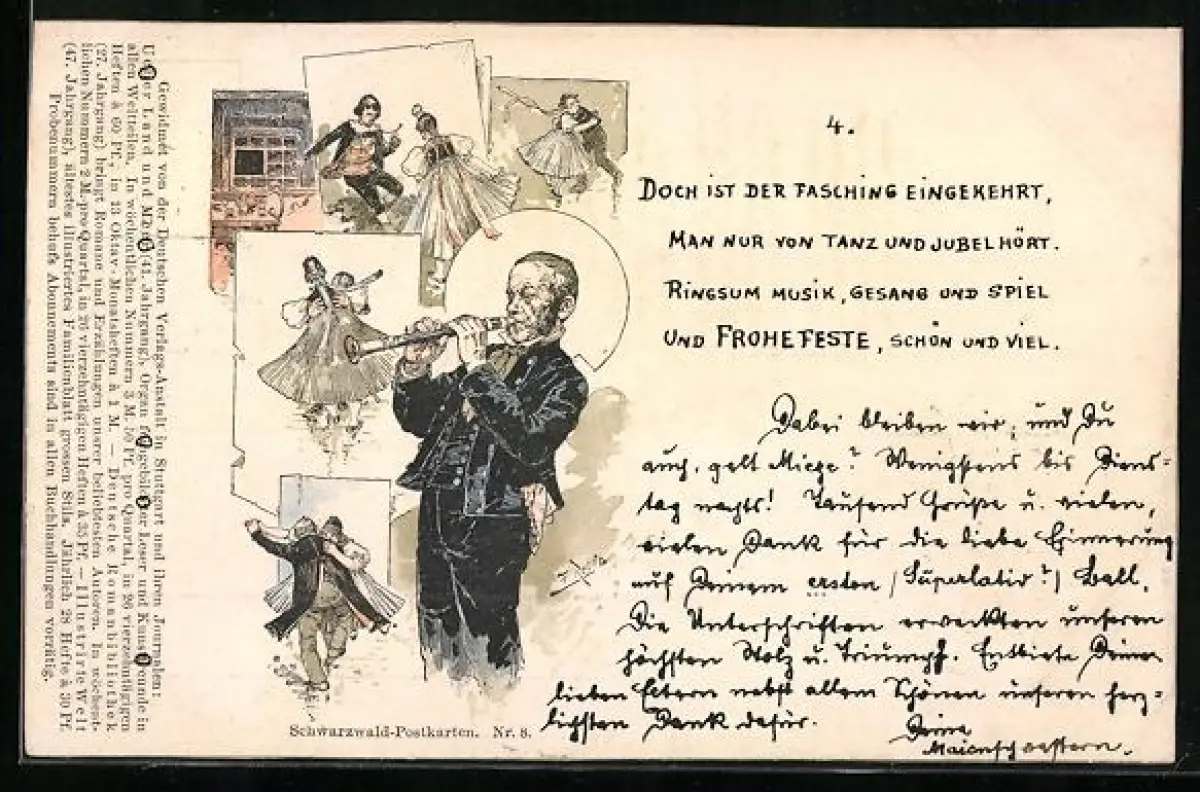 Gewidmet von der Deutschen Verlags-Anstalt in Stuttgart und ihren Journalen:
Ueber Land und Meer (41. Jahrgang), Organ f. gebildeter Leser und Kunstfreunde in
allen Weltteilen. In wöchentlichen Nummern 3 M. 50 Pf. pro Quartal, in 26 vierzehntägigen
Heften à 60 Pf., in 13 Oktav-Monatsheften à 1 M. — Deutsche Romanbibliothek
(27. Jahrgang) bringt Romane und Erzählungen unsrer beliebtesten Autoren. In wöchent-
lichen Nummern 2 M. pro Quartal, in 26 vierzehntägigen Heften à 35 Pf. — Illustrirte Welt
(47. Jahrgang), ältestes illustriertes Familienblatt grossen Stils. Jährlich 28 Hefte à 30 Pf.
Probenummern behufs Abonnements sind in allen Buchhandlungen vorrätig.
4.
DOCH IST DER FASCHING EINGEKEHRT,
MAN NUR VON TANZ UND JUBEL HÖRT.
RINGSUM MUSIK, GESANG UND SPIEL
UND FROHE FESTE, SCHÖN UND VIEL.
Dabei bleiben wir, und Du
auch, gelt Miege? Wenigstens bis Diens-
tag nachts! Tausend Grüße u. vielen,
vielen Dank für die liebe Erinnerung
auf Deinem ersten (Superlativ?) Ball.
Die Unterschriften erweckten unseren
höchsten Stolz u. Triumpf. Entbiete Deinen
lieben Eltern nebst allem Schönen unseren herz-
lichsten Dank dafür.
Deine
Maienschwestern.
Schwarzwald-Postkarten. Nr. 8.